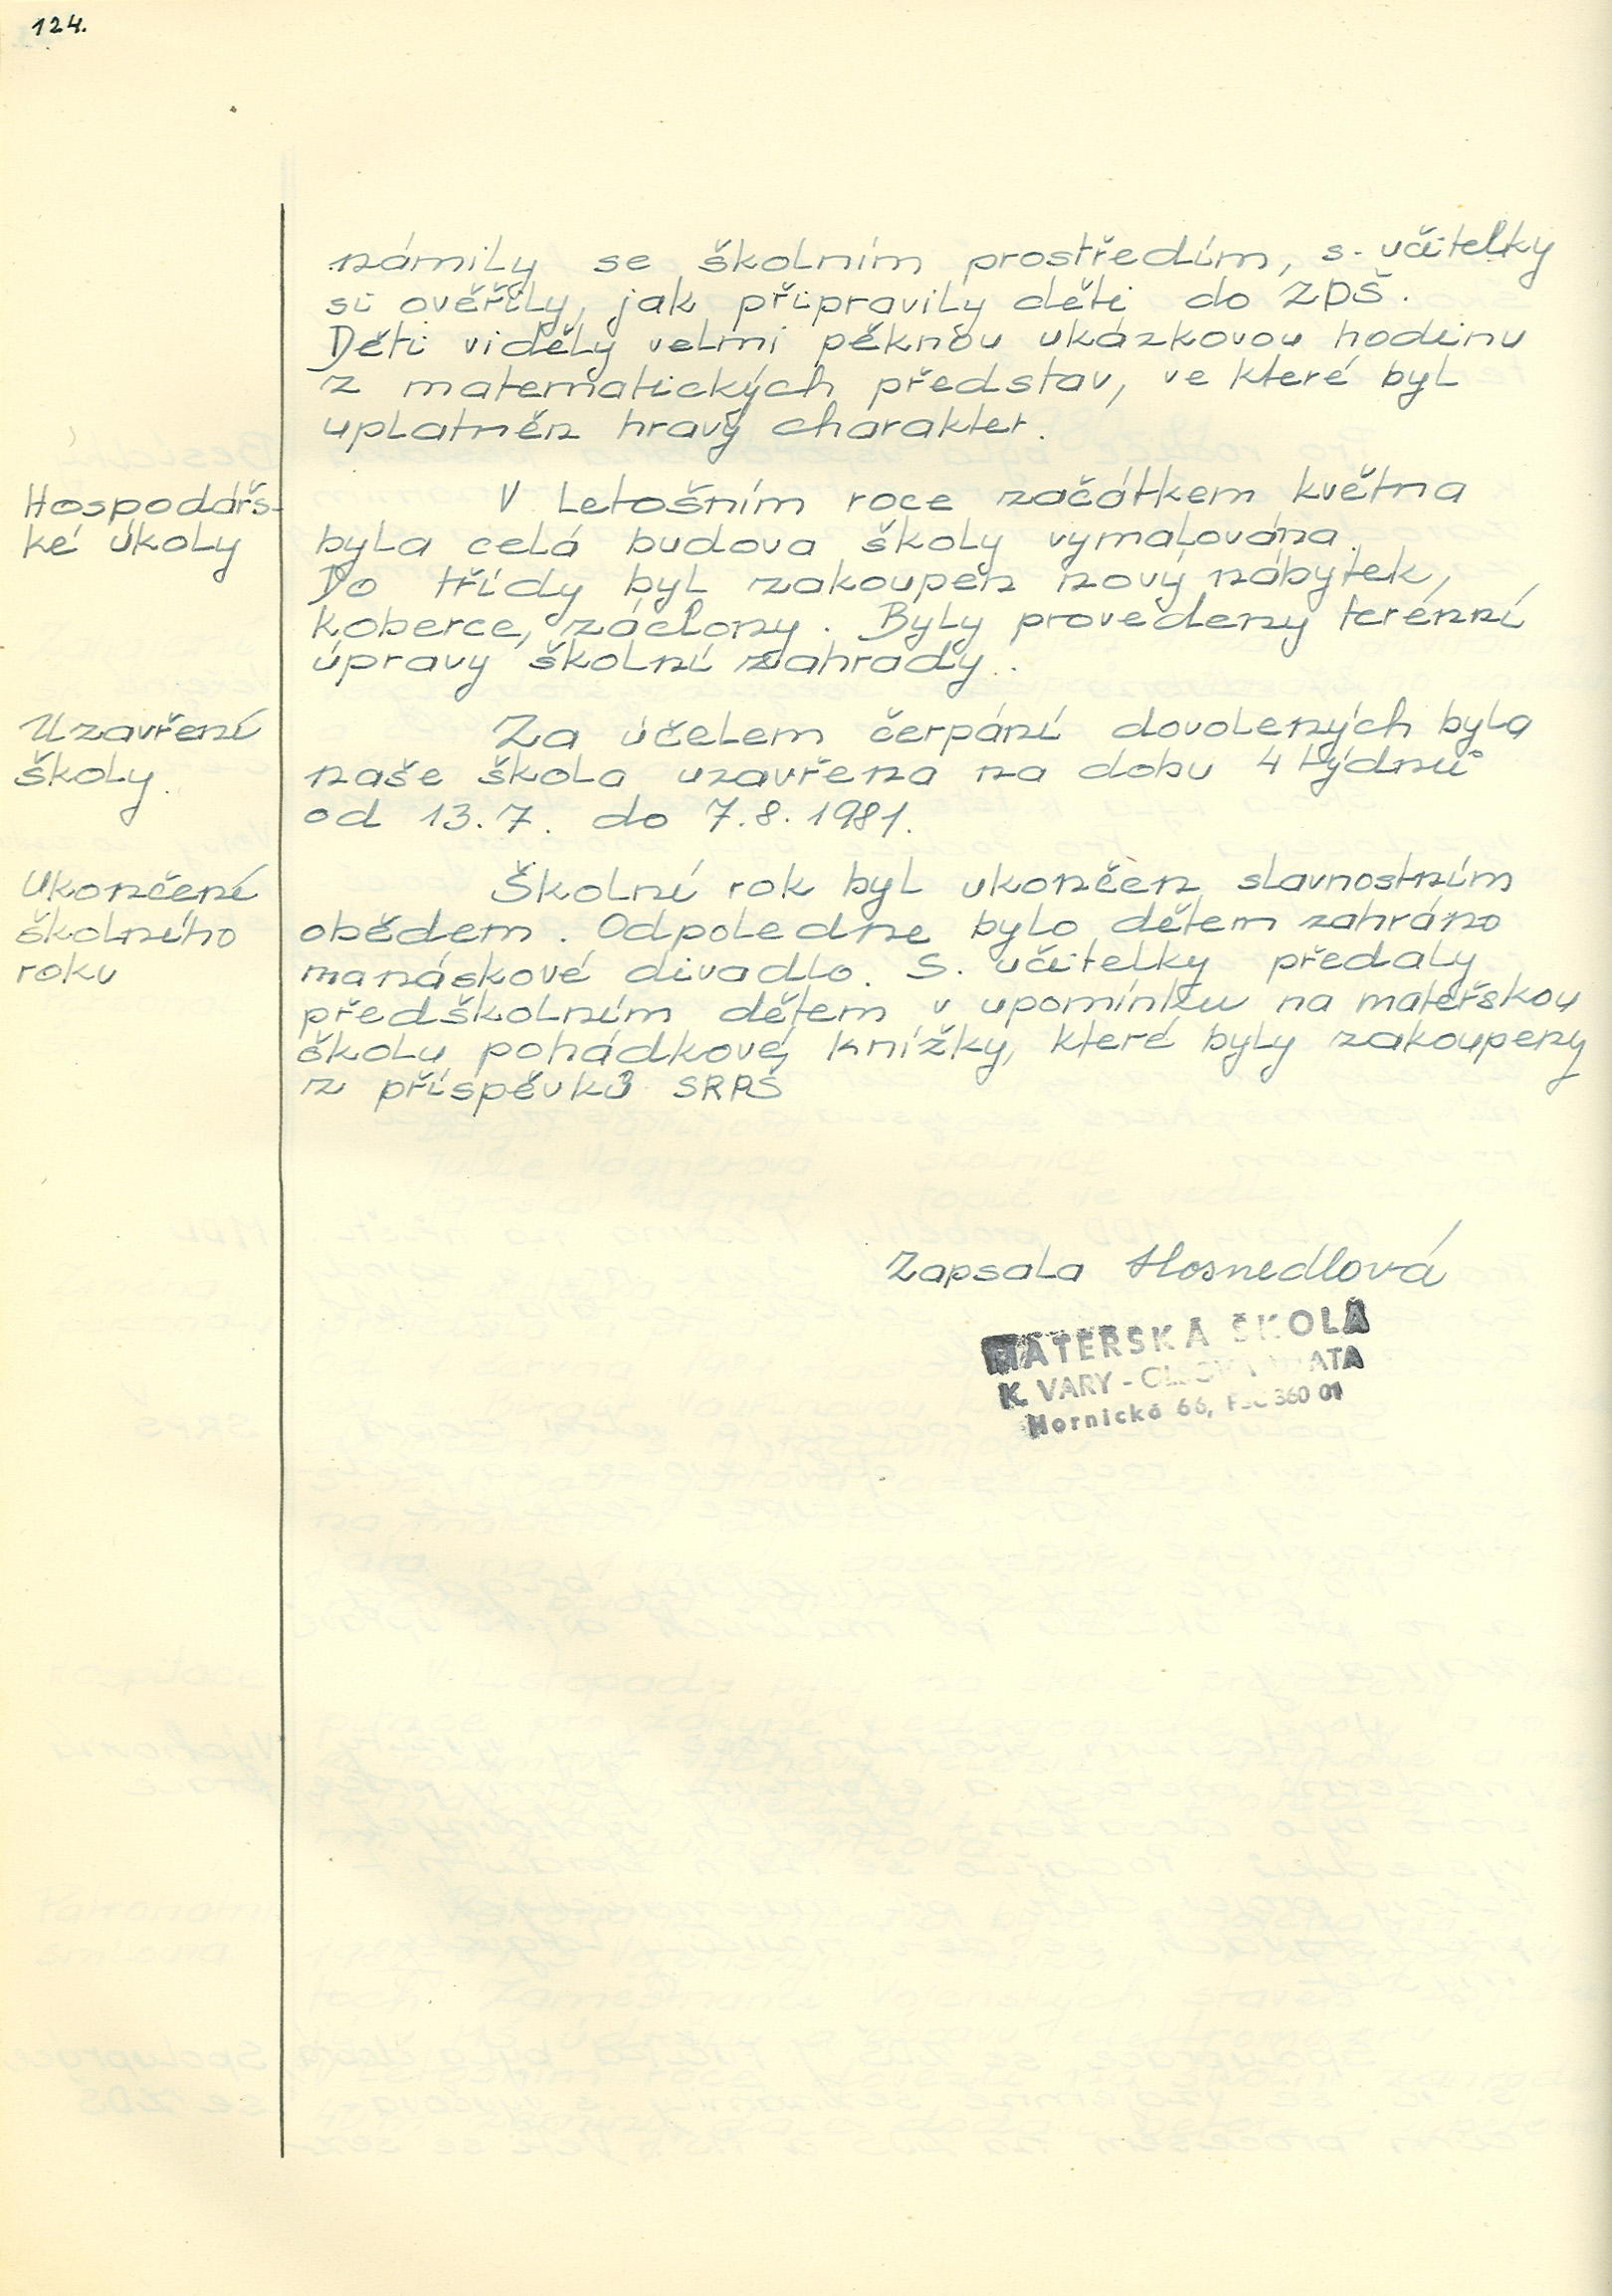 124.
námily se školním prostředím, s. učitelky
si ověřily, jak připravily děti do ZDŠ.
Děti viděly velmi pěknou ukázkovou hodinu
z matematických představ, ve které byl
uplatněn hravý charakter.
Hospodářs-
ké úkoly
V letošním roce začátkem května
byla celá budova školy vymalována.
Do třídy byl zakoupen nový nábytek,
koberce, záclony. Byly provedeny terénní
úpravy školní zahrady.
Uzavření
školy.
Za účelem čerpání dovolených byla
naše škola uzavřena na dobu 4 týdnů
od 13.7. do 7.8.1981.
Ukončení
školního
roku
Školní rok byl ukončen slavnostním
obědem. Odpoledne bylo dětem zahráno
maňáskové divadlo. S. učitelky předaly
předškolním dětem v upomínku na mateřskou
školu pohádkové knížky, které byly zakoupeny
z příspěvků SRPŠ
Zapsala Hosnedlová
MATEŘSKÁ ŠKOLA
K. VARY -
Hornická 66, PSČ 360 01